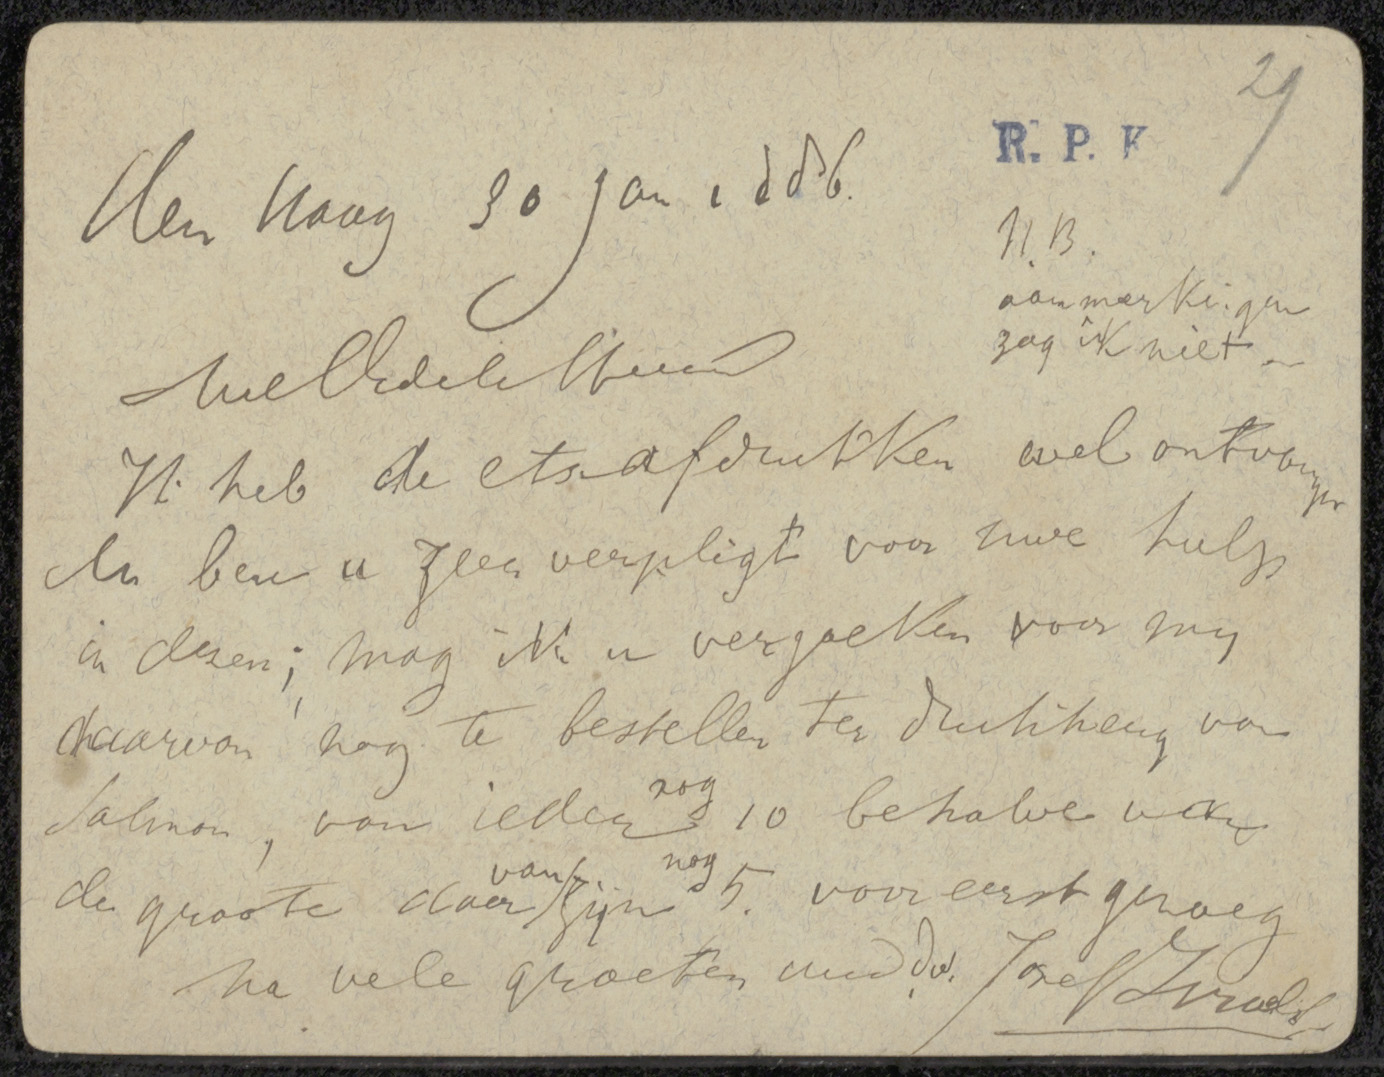 29
R. P. K
Den Haag 30 Jan 1886.
N.B.
aanmerkingen
zag ik niet
WelEdele Heer
Ik heb de etsafdrukken wel ontvangen
en ben u zeer verpligt voor uwe hulp
in dezen; mag ik u verzoeken voor my
daarvan nog te bestellen ter drukkery van
Salmon, van ieder nog 10 behalve van
de groote daarvan zijn nog 5. voor eerst genoeg
na vele groeten uwd dv. Jozef Israels